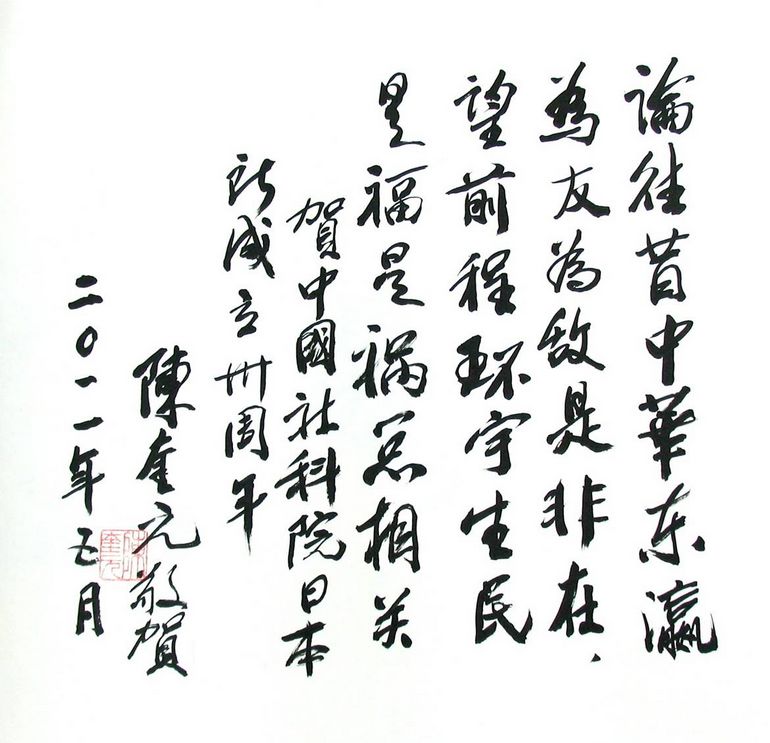 論往昔中華东瀛
為友為敌是非在、
望前程环宇生民
是福是祸总相关
賀中國社科院日本
所成立卅周年
陳奎元敬賀
二〇一一年五月
陳奎元